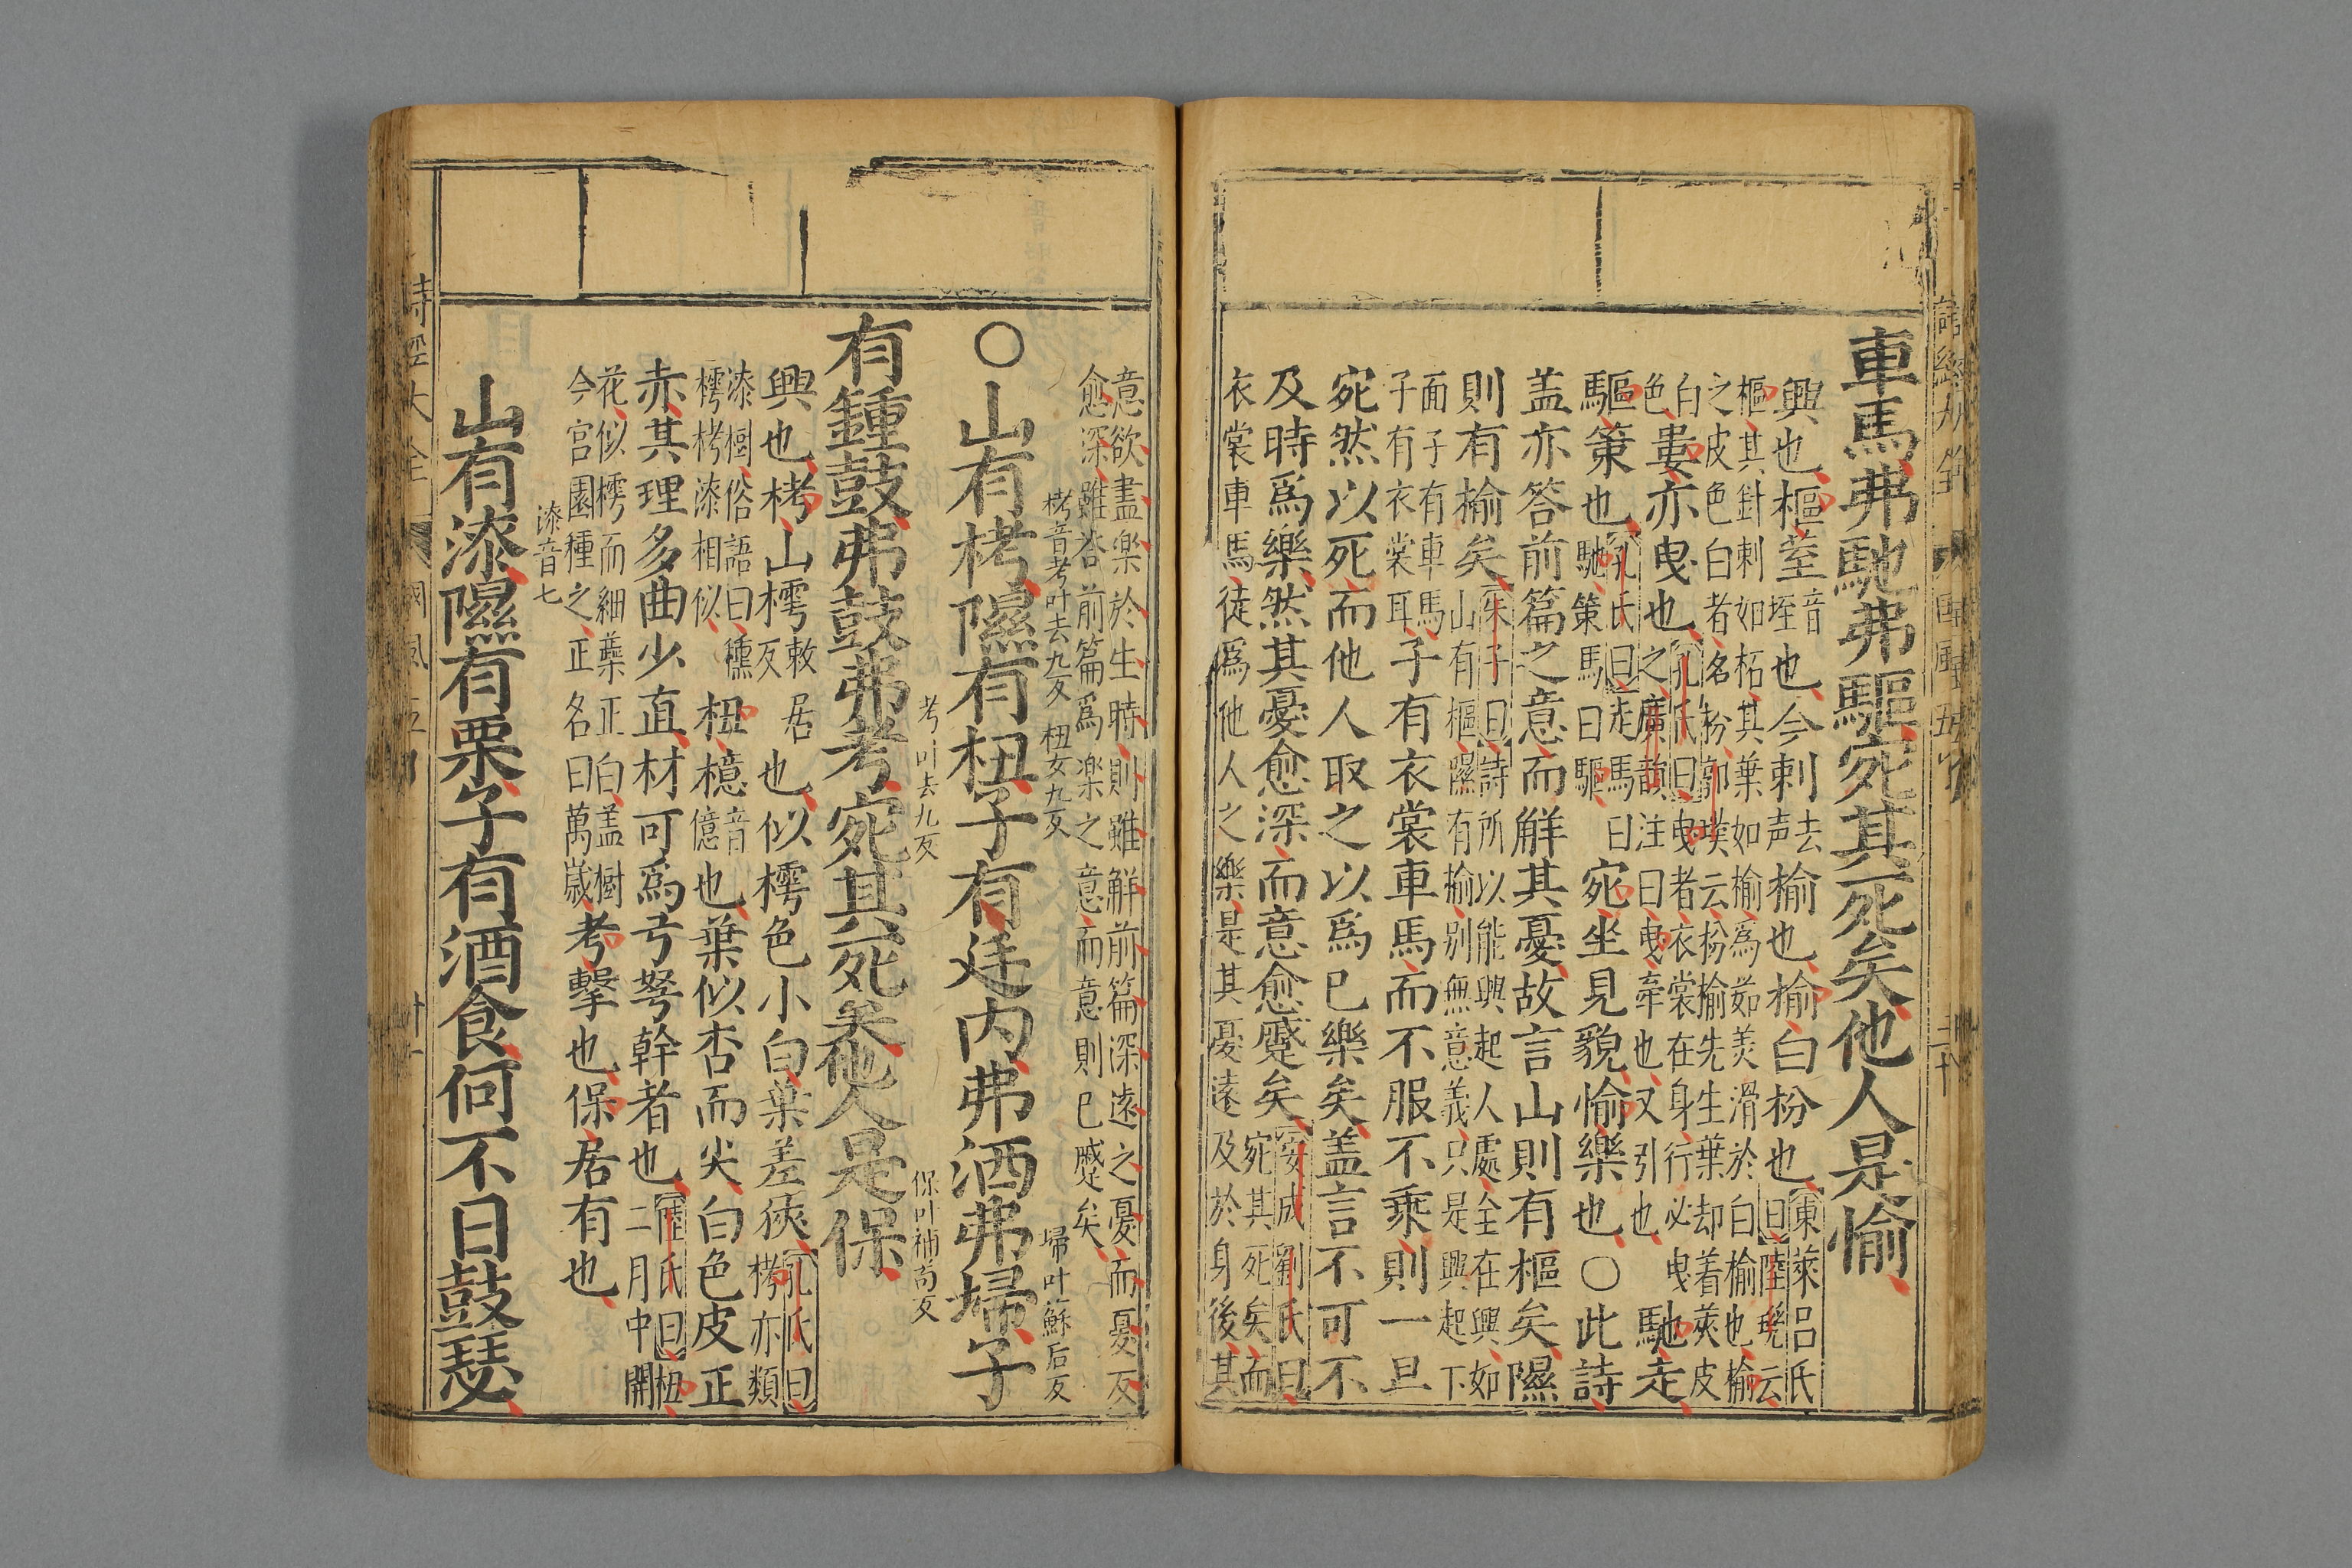 車馬弗馳弗驅宛其死矣他人是愉
興也樞荎音垤也今刺去声榆也榆白枌也東萊呂氏曰陸璣云
樞其針刺如柘其葉如榆為茹美滑於白榆也榆
之皮色白者名枌郭璞云枌榆先生葉却着莢皮
色白婁亦曳也孔氏曰曳者衣裳在身行必曳之廣韻注曰曳牽也又引也馳走
驅策也孔氏曰走馬曰馳策馬曰驅宛坐見貌愉樂也○此詩
盖亦答前篇之意而解其憂故言山則有樞矣隰
則有榆矣朱子曰詩所以能興起人處全在興如山有樞隰有榆別無意義只是興起下
面子有車馬子有衣裳耳子有衣裳車馬而不服不乘則一旦
宛然以死而他人取之以爲已樂矣盖言不可不
及時爲樂然其憂愈深而意愈蹙矣安成劉氏曰宛其死矣而
衣裳車馬徒爲他人之樂是其憂遠及於身後其
意欲盡楽於生時則雖解前篇深遠之憂而憂反
愈深雖答前篇爲楽之意而意則已蹙矣
栲音考叶去九反 杻女九反 埽叶蘇后反
○山有栲隰有杻子有廷内弗洒弗埽子
考叶去九反 保叶補苟反
有鍾鼓弗鼓弗考宛其死矣他人是保
興也栲山樗敕居反也似樗色小白葉差狹孔氏曰栲亦類
漆樹俗語曰櫄樗栲漆相似杻檍音億也葉似杏而尖白色皮正
赤其理多曲少直材可爲弓弩幹者也陸氏曰杻二月中開
花似樗而細蘂正白盖樹今宮園種之正名曰萬歲考擊也保居有也
漆音七
山有漆隰有栗子有酒食何不日鼓瑟
詩經大全 國風五